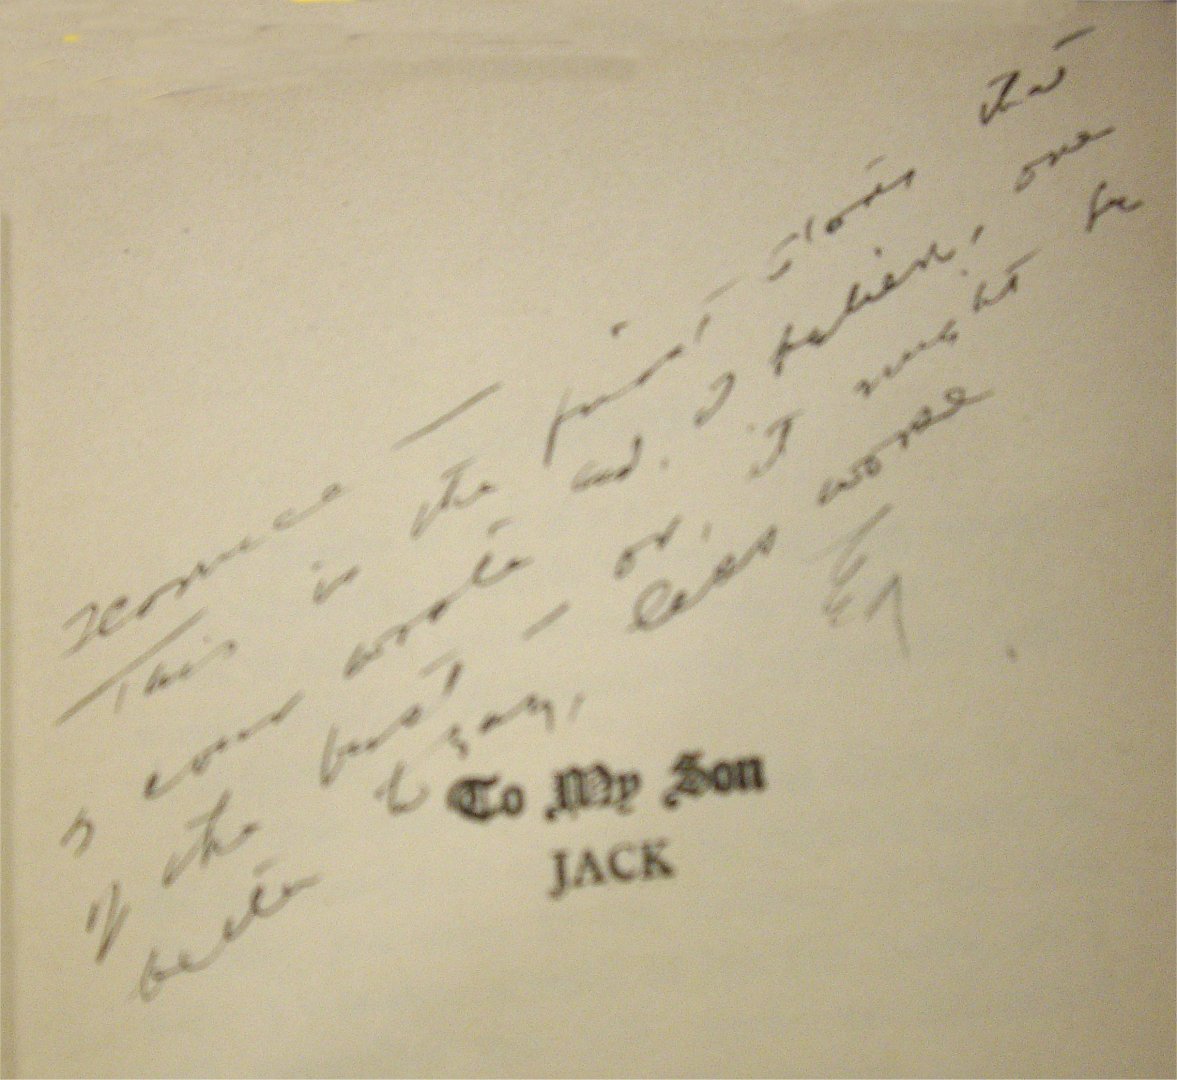 Florence —
This is the first that
I ever wrote and, I believe, one
of the best — or, it might be
better to say, less worse
To My Son
JACK